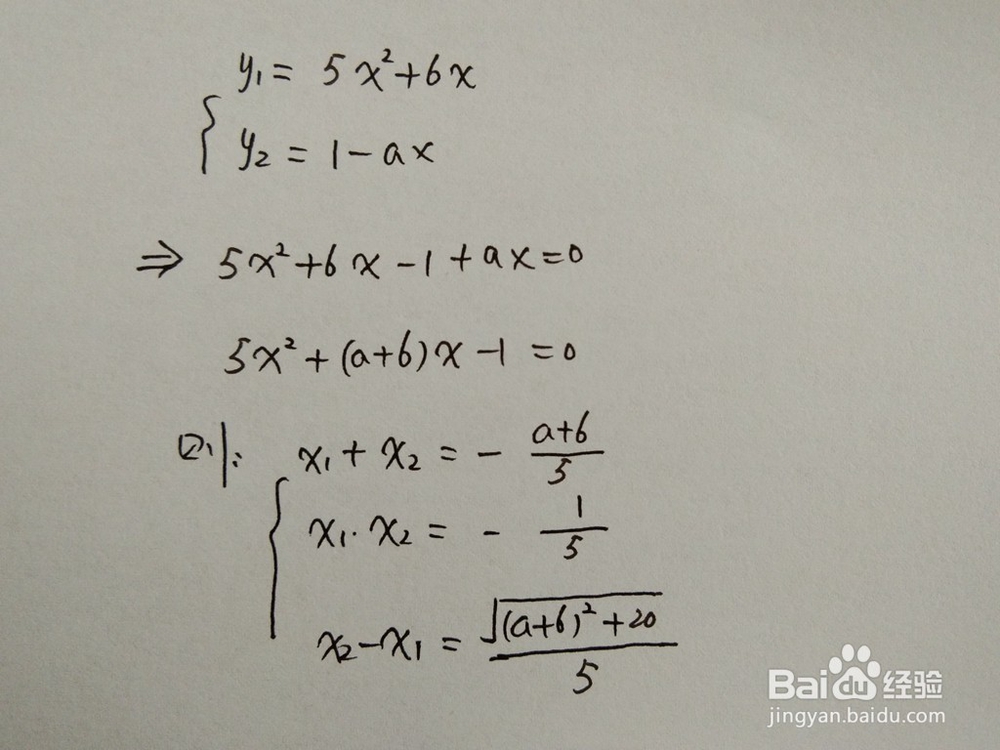 y₁ = 5x²+6x
y₂ = 1-ax
⇒ 5x²+6x-1+ax=0
5x²+(a+6)x-1=0
则: x₁+x₂ = - \frac{a+6}{5}
x₁·x₂ = - \frac{1}{5}
x₂-x₁ = \frac{\sqrt{(a+6)²+20}}{5}
Baidu 经验
jingyan.baidu.com